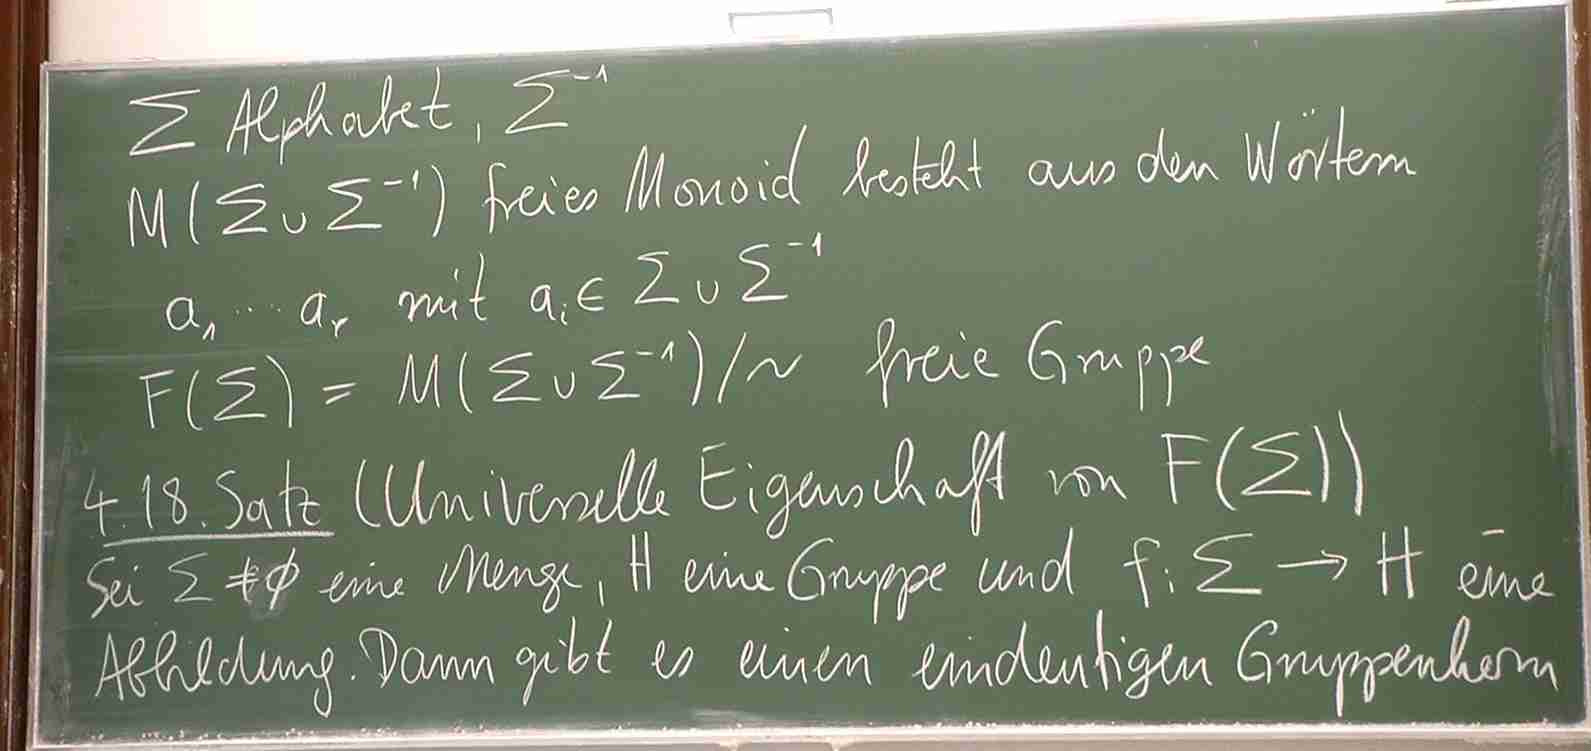 Σ Alphabet, Σ⁻¹
M(Σ∪Σ⁻¹) freies Monoid besteht aus den Wörtern
a₁...aᵣ mit aᵢ∈Σ∪Σ⁻¹
F(Σ) = M(Σ∪Σ⁻¹)/~ freie Gruppe
4.18. Satz (Universelle Eigenschaft von F(Σ))
Sei Σ≠∅ eine Menge, H eine Gruppe und f: Σ → H eine
Abbildung. Dann gibt es einen eindeutigen Gruppenhom